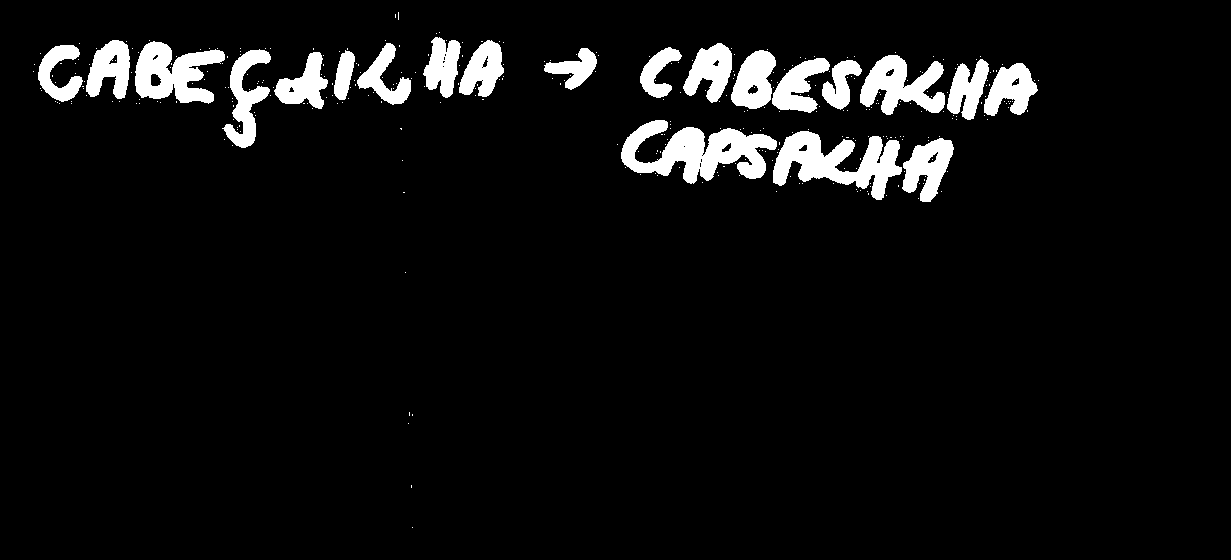 CABEÇAILHA → CABESALHA
CAPSALHA